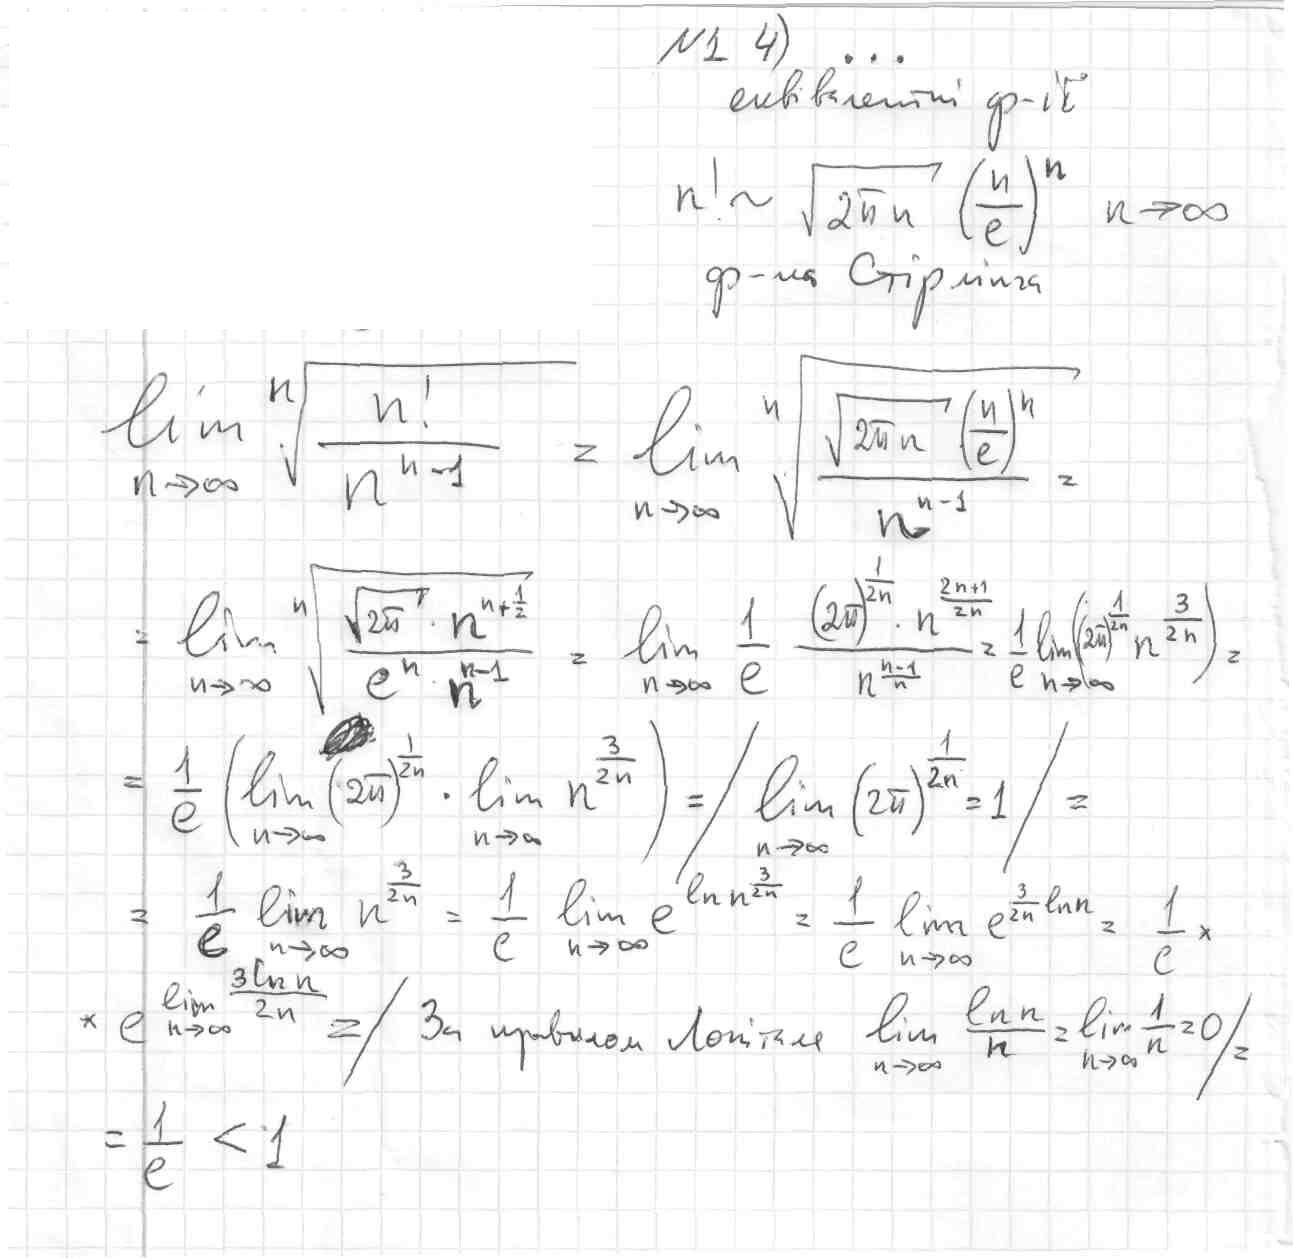 №1 4) ...
еквівалентні ф-ії
n! ~ √(2πn) (n/e)^n n→∞
ф-ла Стірлінга
lim_{n→∞} ⁿ√(n!/n^{n-1}) = lim_{n→∞} ⁿ√(√(2πn) (n/e)^n / n^{n-1}) =
= lim_{n→∞} ⁿ√(√(2π) · n^{n+1/2} / (e^n · n^{n-1})) = lim_{n→∞} 1/e · ((2π)^{1/2n} · n^{(2n+1)/2n}) / n^{(n-1)/n} = 1/e lim_{n→∞} ((2π)^{1/2n} n^{3/2n}) =
= 1/e (lim_{n→∞} (2π)^{1/2n} · lim_{n→∞} n^{3/2n}) = / lim_{n→∞} (2π)^{1/2n} = 1 / =
= 1/e lim_{n→∞} n^{3/2n} = 1/e lim_{n→∞} e^{ln n^{3/2n}} = 1/e lim_{n→∞} e^{3/2n ln n} = 1/e ×
× e^{lim_{n→∞} 3 ln n/2n} = / За правилом Лопіталя lim_{n→∞} ln n/n = lim_{n→∞} 1/n = 0 / =
= 1/e < 1